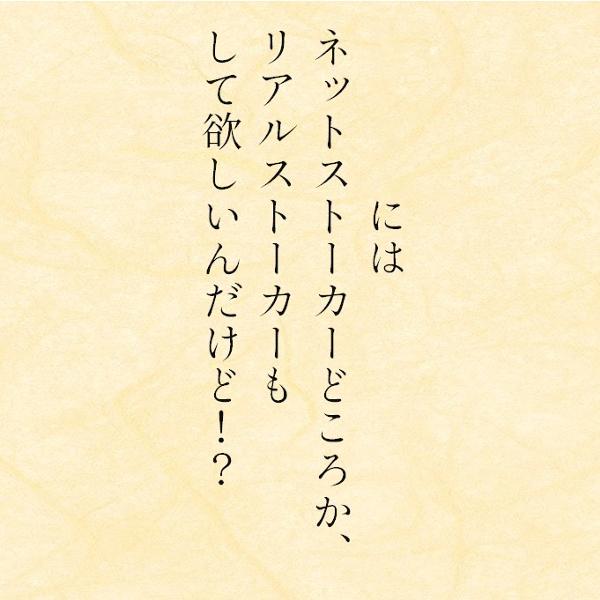 には
ネットストーカーどころか、
リアルストーカーも
して欲しいんだけど！？